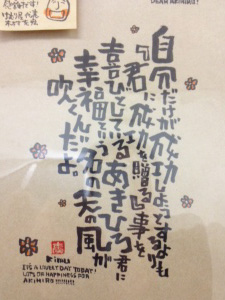 DEAR AKIHIRO!
自分だけが成功しようとするよりも
『君に成功を贈る』事を
喜びとしているあきひろ君に
幸福という名の天の風が
吹くんだよ。
IT'S A LOVELY DAY TODAY!
LOTS OF HAPPINESS FOR
AKIHIRO!!!!!!!!!!